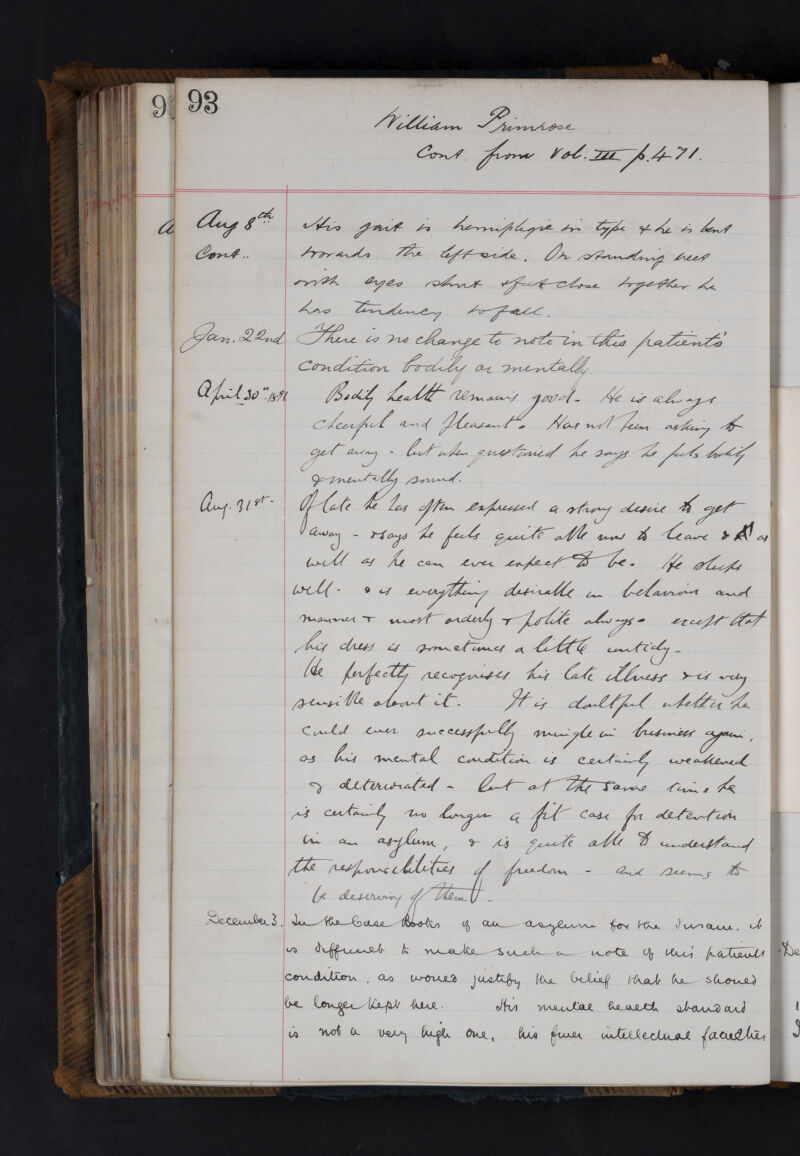 93
9
William Primrose
Cont from Vol. III p. 471.
Aug 8th Cont..
His gait is hemiplegic in type & he is bent
towards the left side. On standing erect
with eyes shut & feet close together he
has tendency to fall.
Jan. 22nd There is no change to note in this patients'
condition bodily or mentally.
April 30th 1891 Bodily health remains good. He is always
cheerful and pleasant. Has not been asking to
get away - but when questioned he says he feels bodily
& mentally sound.
Aug. 31st - Of late he has often expressed a strong desire to get
away - & says he feels quite able now to leave & as
well as he can ever expect to be. He sleeps
well - & is everything desirable in behaviour and
manner & most orderly & polite always except that
his dress is sometimes a little untidy -
He perfectly recognises his late illness & is very
sensible about it. It is doubtful whether he
could ever successfully mingle in business again,
as his mental condition is certainly weakened
& deteriorated - but at the same time he
is certainly no longer a fit case for detention
in an asylum, & is quite able to understand
the responsibilities of freedom - and seems to
be deserving of them -
December 3. In the Case Books of an asylum for the Insane, it
is difficult to make such a note of this patients
condition, as would justify the belief that he should
be longer kept here. His mental health standard
is not a very high one, his finer intellectual faculties
De